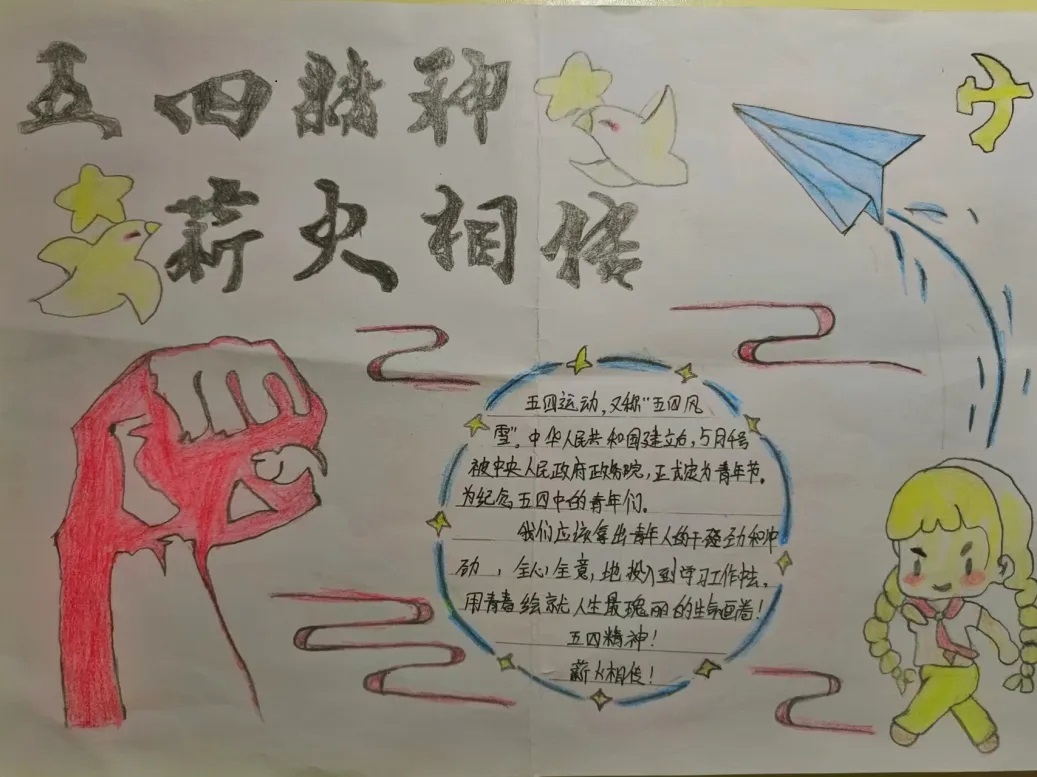 五四精神
薪火相传
五四运动，又称"五四风
雪"。中华人民共和国建立后，5月4号
被中央人民政府政务院，正式定为青年节。
为纪念五四中的青年们。
我们应该拿出青年人的干劲和冲
劲，全心全意，地投入到学习工作去，
用青春绘就人生最瑰丽的生命画卷！
五四精神！
薪火相传！